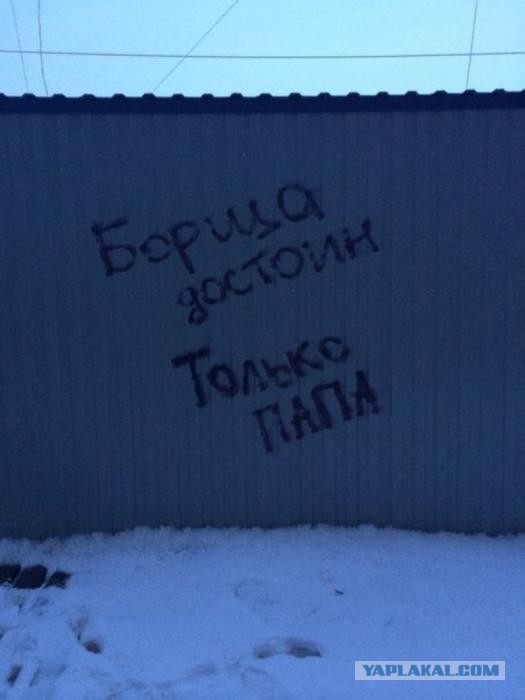 Борща
достоин
Только
ПАПА
YAPLAKAL.COM